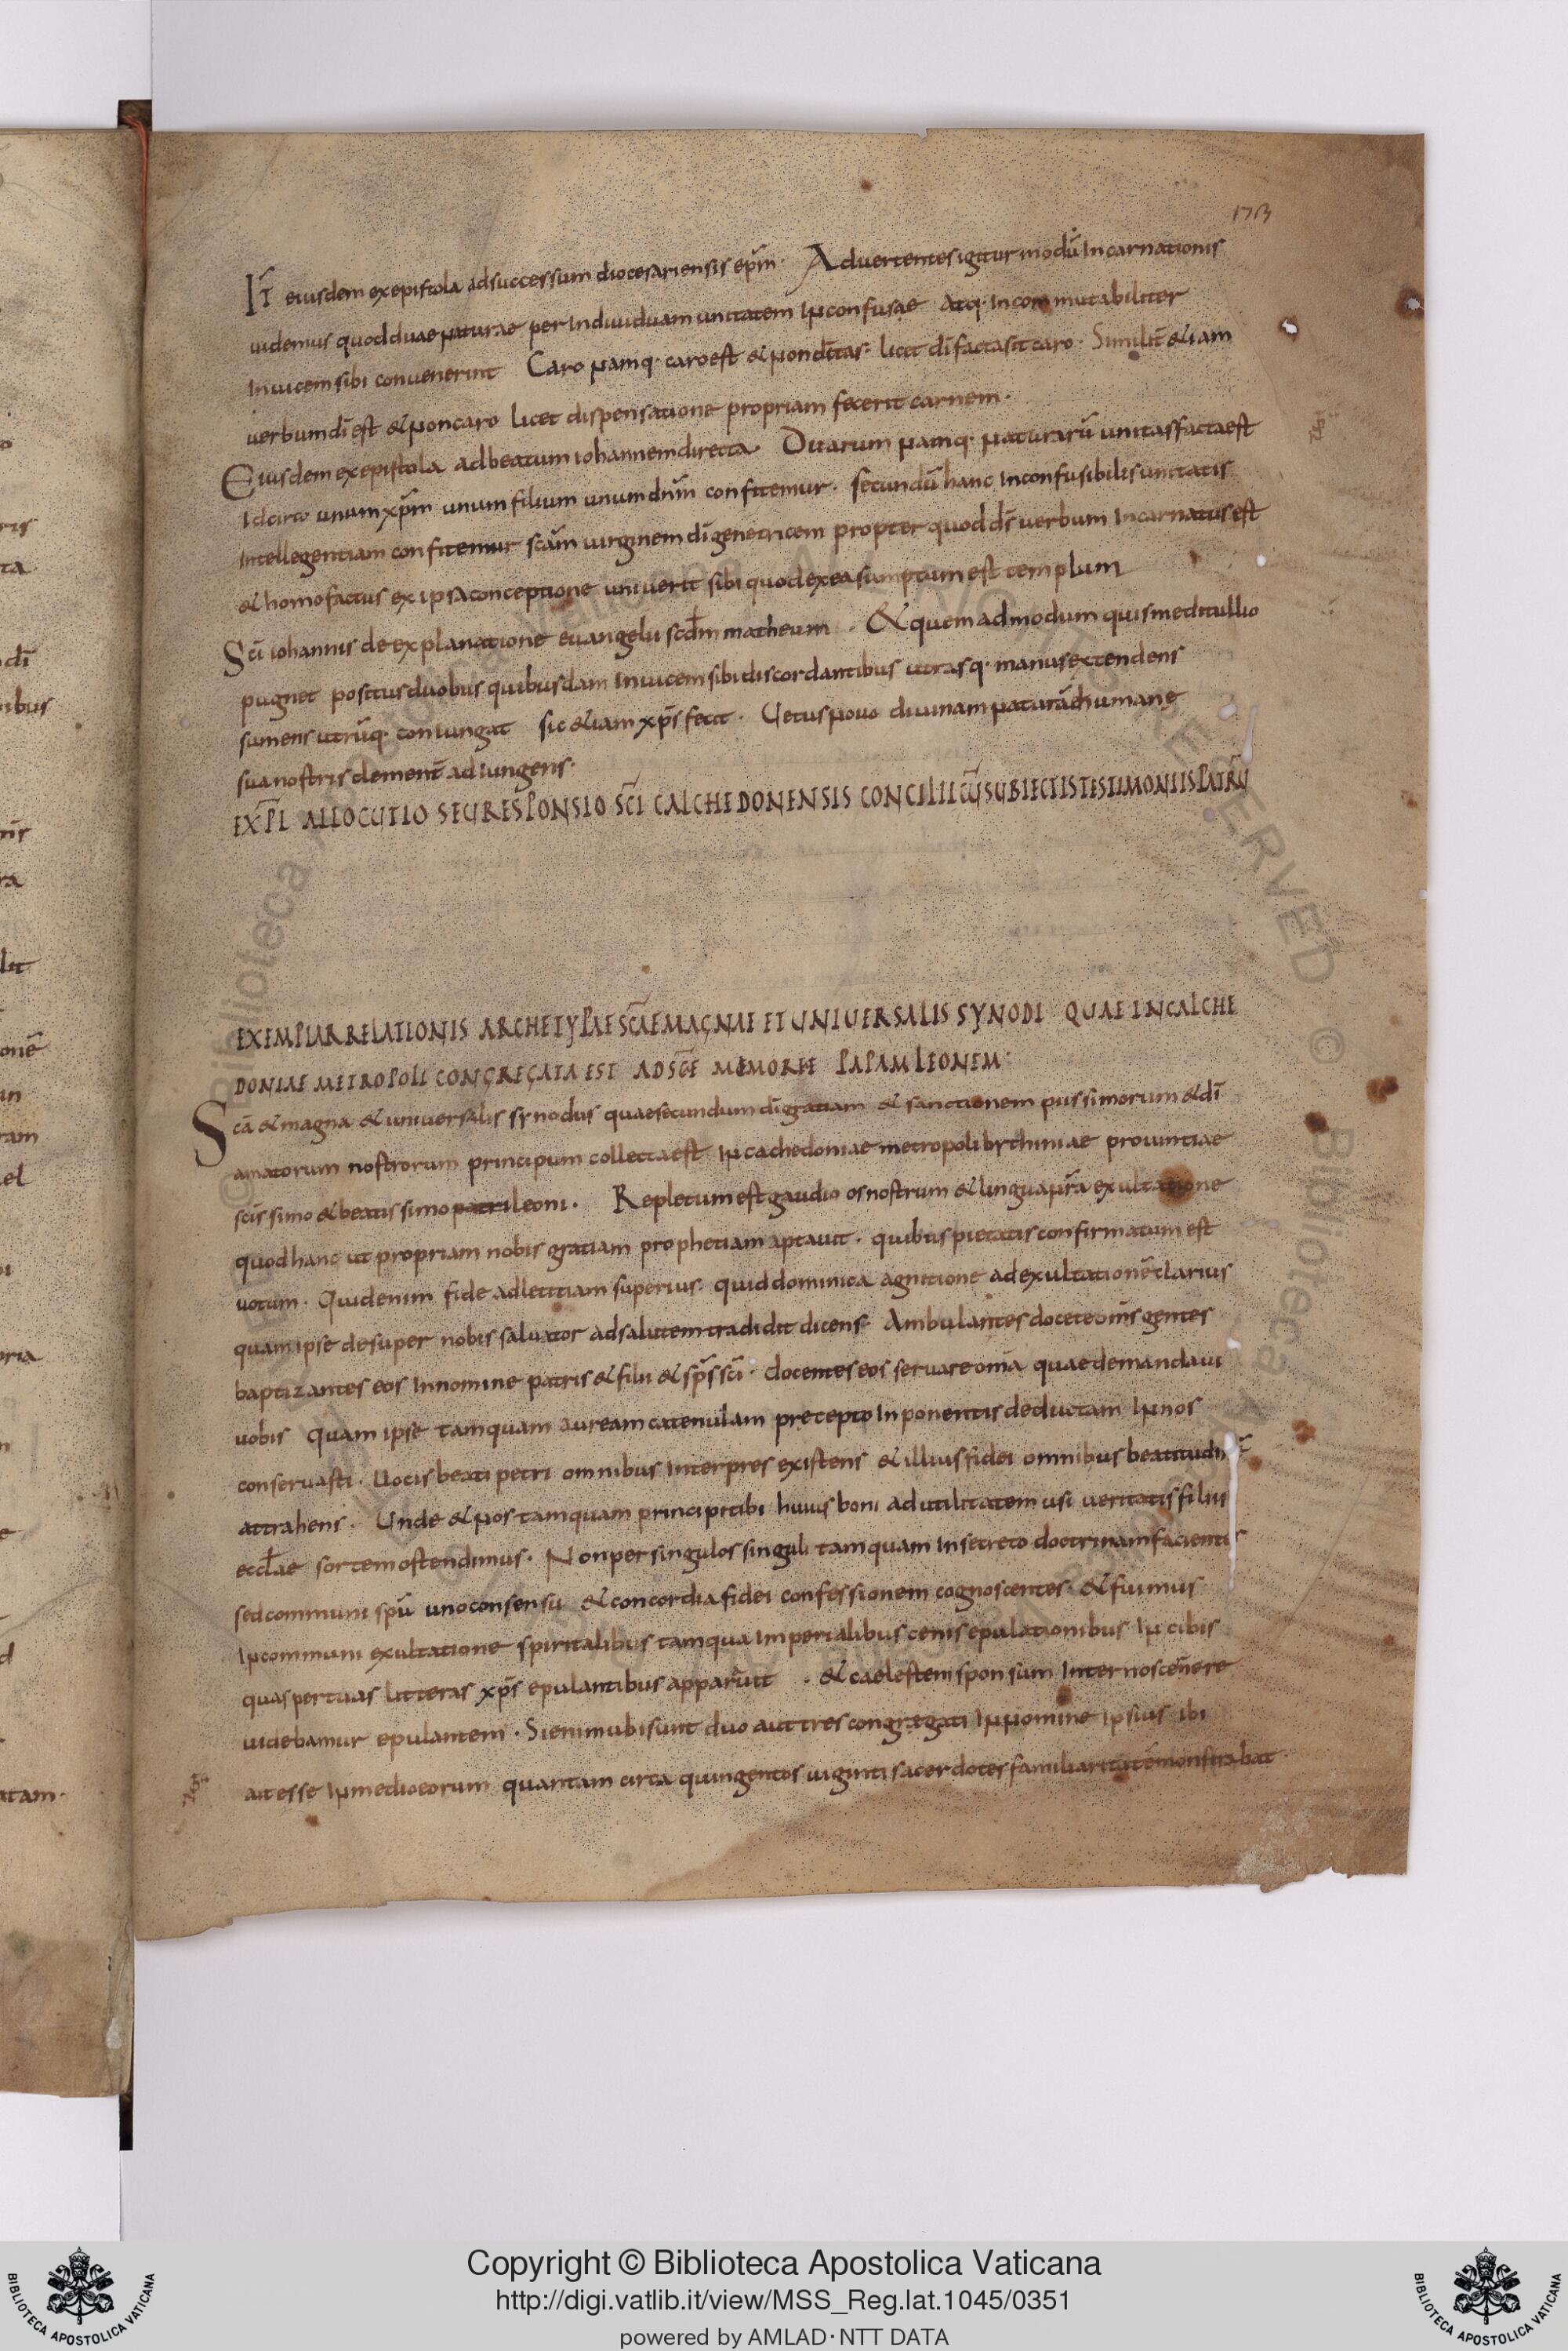 173
IT eiusdem ex epistola ad successum diocesariensis epm̄· Aduertentes igitur modū Incarnationis
uidemus quod duae naturae per Indiuiduam unitatem Inconfusae atq· Incommutabiliter
Inuicem sibi conuenerint Caro namq· caro est & non deitas· licet dī facta sit caro· Similit̄ &iam
uerbum dī est & non caro licet dispensatione propriam fecerit carnem·
Eiusdem ex epistola ad beatum iohannem directa· Duarum namq· naturarū unitas facta est
Idcirco unum xpm̄ unum filium unum dnm̄ confitemur· secundū hanc Inconfusibilis unitatis
Intellegentiam confitemur scām uirginem dī genetricem propter quod ds̄ uerbum Incarnatus est
& homo factus ex ipsa conceptione uniuerit sibi quod ex ea sumptum est templum
Scī iohannis de explanatione euangelii scdm̄ matheum · & quem ad modum quis meditullio
pugnet positus duobus quibusdam Inuicem sibi discordantibus utrasq· manus extendens
sumens utrūq· coniungat sic &iam xps̄ fecit· Uetus nouo diuinam naturā humane
sua nostris clement̄ adiungens·
EXPL̄ ALLOCUTIO SEU RESPONSIO SC̄I CALCHEDONENSIS CONCILII CŪ SUBIECTIS TESTIMONIIS PATRŪ
EXEMPLAR RELATIONIS ARCHETYPAE SC̄AE MAGNAE ET UNIUERSALIS SYNODI QUAE IN CALCHE
DONIAE METROPOLI CONGREGATA EST AD SC̄E MEMORIE PAPAM LEONEM:
Scā & magna & uniuersalis synodus quae secundum dī gratiam & sanctionem piissimorum & dī
amatorum nostrorum principum collecta est In cachedoniae metropoli bythiniae prouintiae
scīssimo & beatissimo patri leoni· Repletum est gaudio os nostrum & lingua nr̄a exultatione
quod hanc ut propriam nobis gratiam prophetiam aptauit· quibus pietatis confirmatum est
uotum· Quid enim fide ad letitiam superius· quid dominica agnitione ad exultationē clarius
quam ipse desuper nobis saluator ad salutem tradidit dicens· Ambulantes docete om̄s gentes
baptizantes eos In nomine patris & filii & sps̄ scī· docentes eos seruare omīa quae demandaui
uobis quam ipse tamquam auream catenulam precepto Inponentis deductam In nos
conseruasti· Uocis beati petri omnibus Interpres existens & illius fidei omnibus beatitudinē
attrahens· Unde & nos tamquam principi tibi huius boni ad utilitatem usi ueritatis filiis
eccl̄ae sortem ostendimus· Non per singulos singuli tamquam In secreto doctrinam facientes
sed communi spū uno consensu & concordia fidei confessionem cognoscentes· & fuimus
In communi exultatione spiritalibus tamqua Imperialibus cenis epulationibus In cibis
quas per tuas litteras xps̄ epulantibus apparuit · & caelestem sponsum Internoscenere
uidebamur epulantem· Si enim ubi sunt duo aut tres congregati In nomine Ipsius ibi
ait esse In medio eorum quantam circa quingentos uiginti sacerdotes familiaritatē monstrabat
Copyright © Biblioteca Apostolica Vaticana
http://digi.vatlib.it/view/MSS_Reg.lat.1045/0351
powered by AMLAD·NTT DATA
BIBLIOTECA APOSTOLICA VATICANA
BIBLIOTECA APOSTOLICA VATICANA